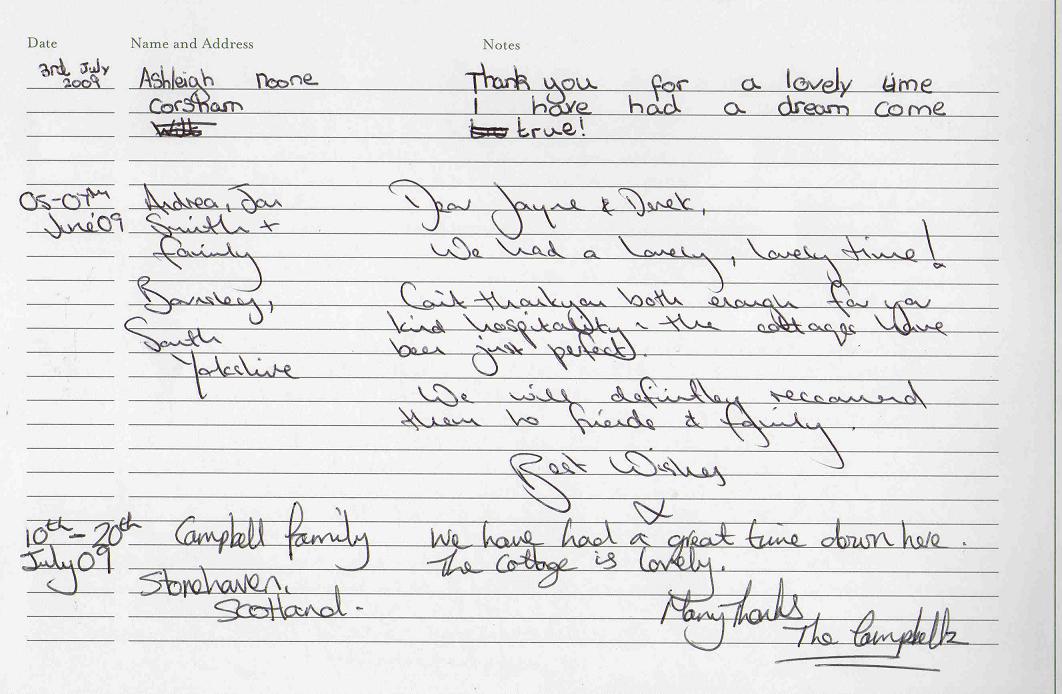 Date Name and Address Notes
3rd July Ashleigh noone Thank you for a lovely time
2009 Corsham I have had a dream come
true!
05-07th Andrea, Jon Dear Jayne & Derek,
June'09 Smith +
family We had a lovely, lovely time!
Barnsley, Can't thankyou both enough for your
South kind hospitality - the cottages have
been just perfect.
Yorkshire
We will definitley reccomend
them to friends & family.
Best Wishes
X
10th - 20th Campbell family We have had a great time down here.
July 09 The Cottage is lovely.
Stonehaven,
Scotland - Many Thanks
The Campbells